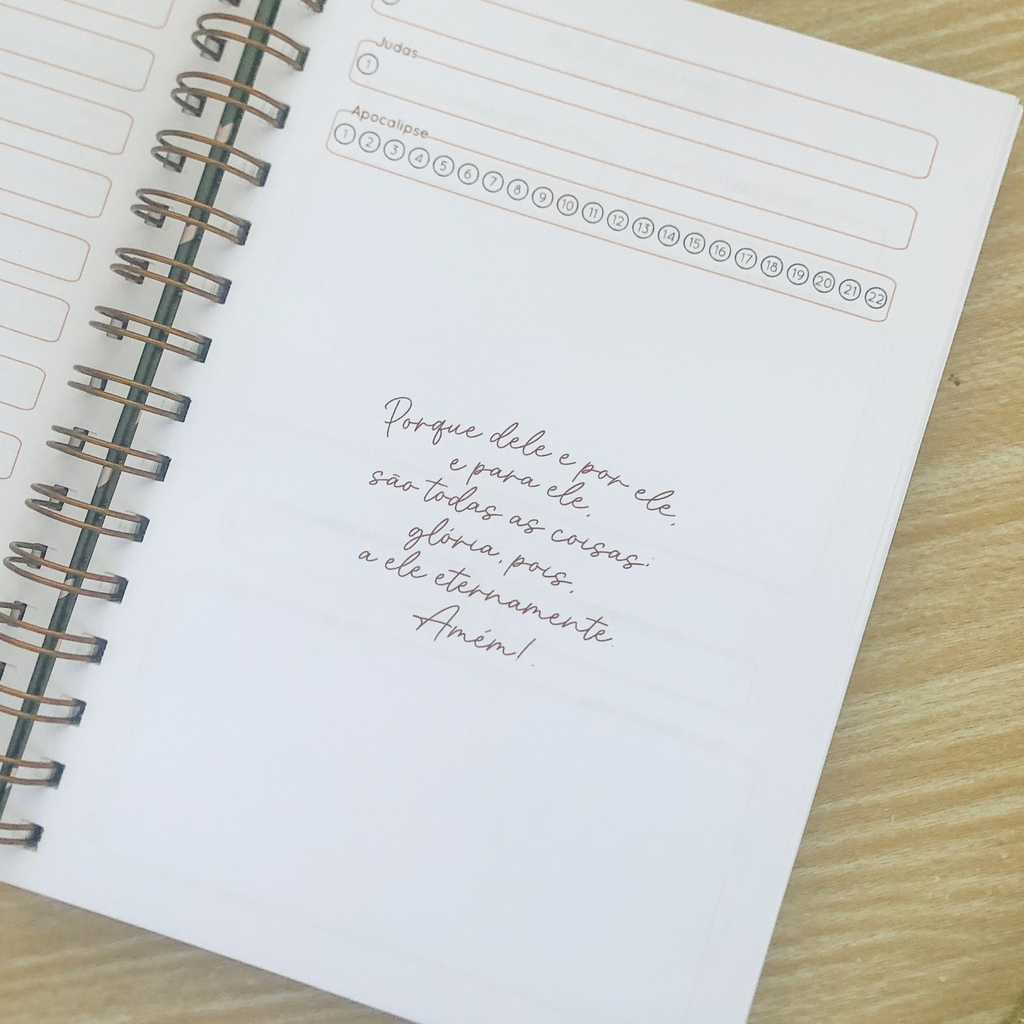 Judas
1
Apocalipse
1 2 3 4 5 6 7 8 9 10 11 12 13 14 15 16 17 18 19 20 21 22
Porque dele e por ele,
e para ele,
são todas as coisas;
glória, pois,
a ele eternamente.
Amém!